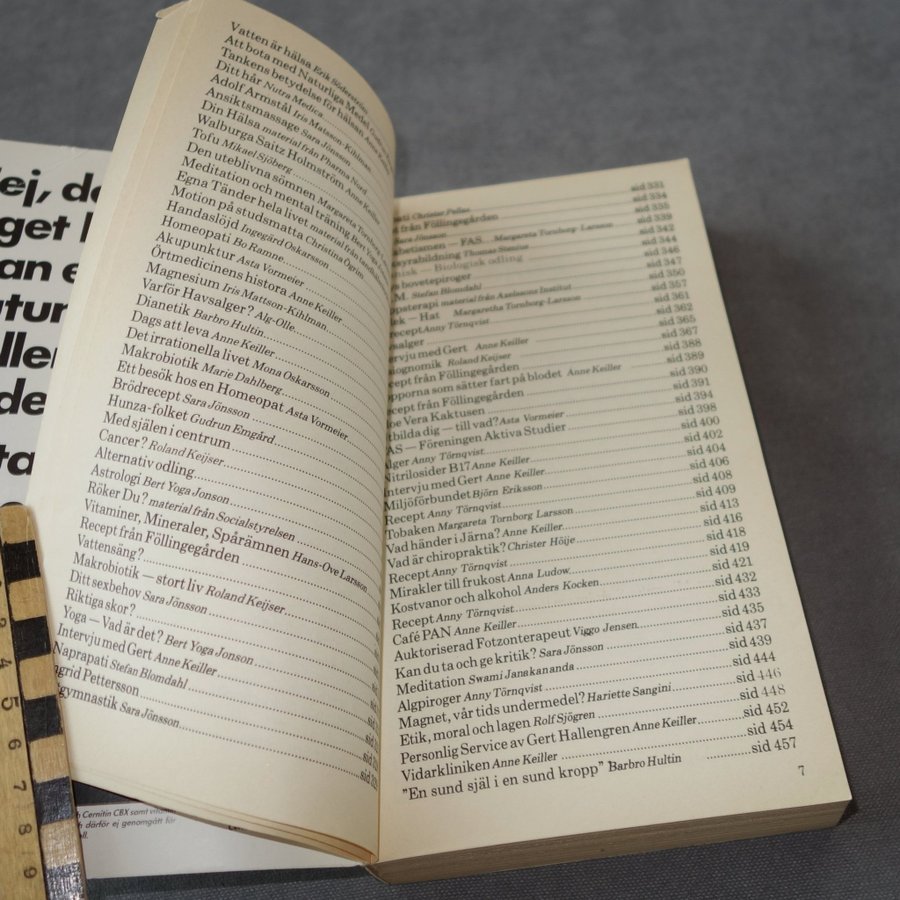 Vatten är hälsa Erik Söderström
Att bota med Naturliga Medel
Tankens betydelse för hälsan Anne
Ditt hår Nutra Medica
Adolf Armstål Iris Matsson-Kihlman
Ansiktsmassage Sara Jönsson
Din Hälsa material från Pharma Nord
Walburga Saitz Holmström Anne Keiller
Tofu Mikael Sjöberg
Den uteblivna sömnen Margareta Tornborg
Meditation och mental träning Bert Yoga
Egna Tänder hela livet material från
Motion på studsmatta Christina Ögren
Handaslöjd Ingegärd Oskarsson
Homeopati Bo Ramne
Akupunktur Asta Vormeier
Örtmedicinens histora Anne Keiller
Magnesium Iris Mattson-Kihlman
Varför Havsalger? Alg-Olle
Dianetik Barbro Hultin
Dags att leva Anne Keiller
Det irrationella livet Mona Oskarsson
Makrobiotik Marie Dahlberg
Ett besök hos en Homeopat Asta Vormeier
Brödrecept Sara Jönsson
Hunza-folket Gudrun Emgård
Med själen i centrum
Cancer? Roland Keijser
Alternativ odling
Astrologi Bert Yoga Jonson
Röker Du? material från Socialstyrelsen
Vitaminer, Mineraler, Spårämnen Hans-Ove Larsson
Recept från Föllingegården
Vattensäng?
Makrobiotik — stort liv Roland Keijser
Ditt sexbehov Sara Jönsson
Riktiga skor?
Yoga — Vad är det? Bert Yoga Jonson
Intervju med Gert Anne Keiller
Naprapati Stefan Blomdahl
Ingrid Pettersson
gymnastik Sara Jönsson
Christer Pellas sid 331
från Föllingegården sid 334
Sara Jönsson sid 335
— FAS Margareta Tornborg-Larsson sid 339
Thomas Stenius sid 342
— Biologisk odling sid 344
bovetepiroger sid 346
M. Stefan Blomdahl sid 347
material från Axelsons Institut sid 350
— Hat Margaretha Tornborg-Larsson sid 357
recept Anny Törnqvist sid 361
salger sid 362
Intervju med Gert Anne Keiller sid 365
Roland Keijser sid 367
Recept från Föllingegården sid 388
som sätter fart på blodet Anne Keiller sid 389
Recept från Föllingegården sid 390
Vera Kaktusen sid 391
Utbilda dig — till vad? Asta Vormeier sid 394
— Föreningen Aktiva Studier sid 398
Alger Anny Törnqvist sid 400
Nitrilosider B17 Anne Keiller sid 402
Intervju med Gert Anne Keiller sid 404
Miljöförbundet Björn Eriksson sid 406
Recept Anny Törnqvist sid 408
Tobaken Margareta Tornborg Larsson sid 409
Vad händer i Järna? Anne Keiller sid 413
Vad är chiropraktik? Christer Höije sid 416
Recept Anny Törnqvist sid 418
Mirakler till frukost Anna Ludow sid 419
Kostvanor och alkohol Anders Kocken sid 421
Recept Anny Törnqvist sid 432
Café PAN Anne Keiller sid 433
Auktoriserad Fotzonterapeut Viggo Jensen sid 435
Kan du ta och ge kritik? Sara Jönsson sid 437
Meditation Swami Janakananda sid 439
Algpiroger Anny Törnqvist sid 444
Magnet, vår tids undermedel? Hariette Sangini sid 446
Etik, moral och lagen Rolf Sjögren sid 448
Personlig Service av Gert Hallengren Anne Keiller sid 452
Vidarkliniken Anne Keiller sid 454
"En sund själ i en sund kropp" Barbro Hultin sid 457
7
Cernitin CBX samt
därför ej genomgått för
4
5
6
7
8
9